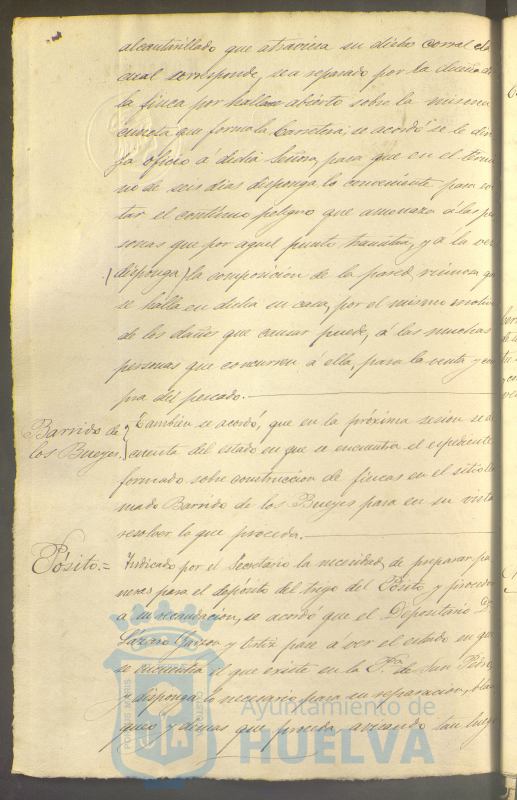 alcantarillado que atraviesa su dicho corral el
cual corresponde, sea reparado por la dueña de
la finca por hallarse abierto sobre la misma
cuneta que forma la Carretera; se acordó se le diri
ja oficio á dicha Señora, para que en el térmi
no de seis dias disponga lo conveniente para
tar el contínuo peligro que amenaza á las per
sonas que por aquel punto transitan, y á la vez
(disponga) la composicion de la pared ruinosa que
se halla en dicha su casa, por el mismo motivo
de los daños que causar puede, á las muchas
personas que concurren á ella, para la venta y com
pra del pescado.
Barrido de
los Bueyes.
Tambien se acordó, que en la próxima sesion se dé
cuenta del estado en que se encuentra el espediente
formado sobre construccion de fincas en el sitio lla
mado Barrido de los Bueyes para en su vista
resolver lo que proceda.
Pósito.=
Indicado por el Secretario la necesidad de preparar pa
neras para el depósito del trigo del Pósito y proceder
a su recaudacion, se acordó que el Depositario D.
Lázaro y Ortiz pase á ver el estado en que
se encuentra el que existe en la P.ª de San Pedro
y disponga lo necesario para su reparacion, blan
queo y demas que proceda, avisando tan luego
Ayuntamiento de
HUELVA